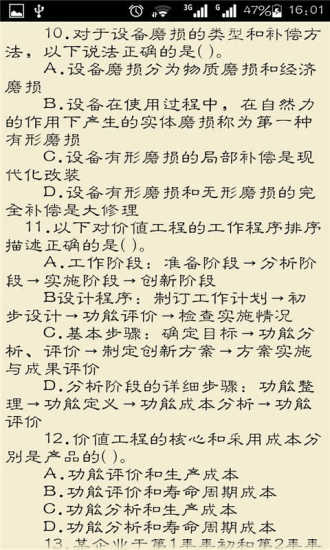 3G G 47% 16:01
10.对于设备磨损的类型和补偿方
法，以下说法正确的是( )。
A.设备磨损分为物质磨损和经济
磨损
B.设备在使用过程中，在自然力
的作用下产生的实体磨损称为第一种
有形磨损
C.设备有形磨损的局部补偿是现
代化改装
D.设备有形磨损和无形磨损的完
全补偿是大修理
11.以下对价值工程的工作程序排序
描述正确的是( )。
A.工作阶段：准备阶段→分析阶
段→实施阶段→创新阶段
B设计程序：制订工作计划→初
步设计→功能评价→检查实施情况
C.基本步骤：确定目标→功能分
析、评价→制定创新方案→方案实施
与成果评价
D.分析阶段的详细步骤：功能整
理→功能定义→功能成本分析→功能
评价
12.价值工程的核心和采用成本分
别是产品的( )。
A.功能评价和生产成本
B.功能评价和寿命周期成本
C.功能分析和生产成本
D.功能分析和寿命周期成本
13.某企业于第1年年初和第2年年